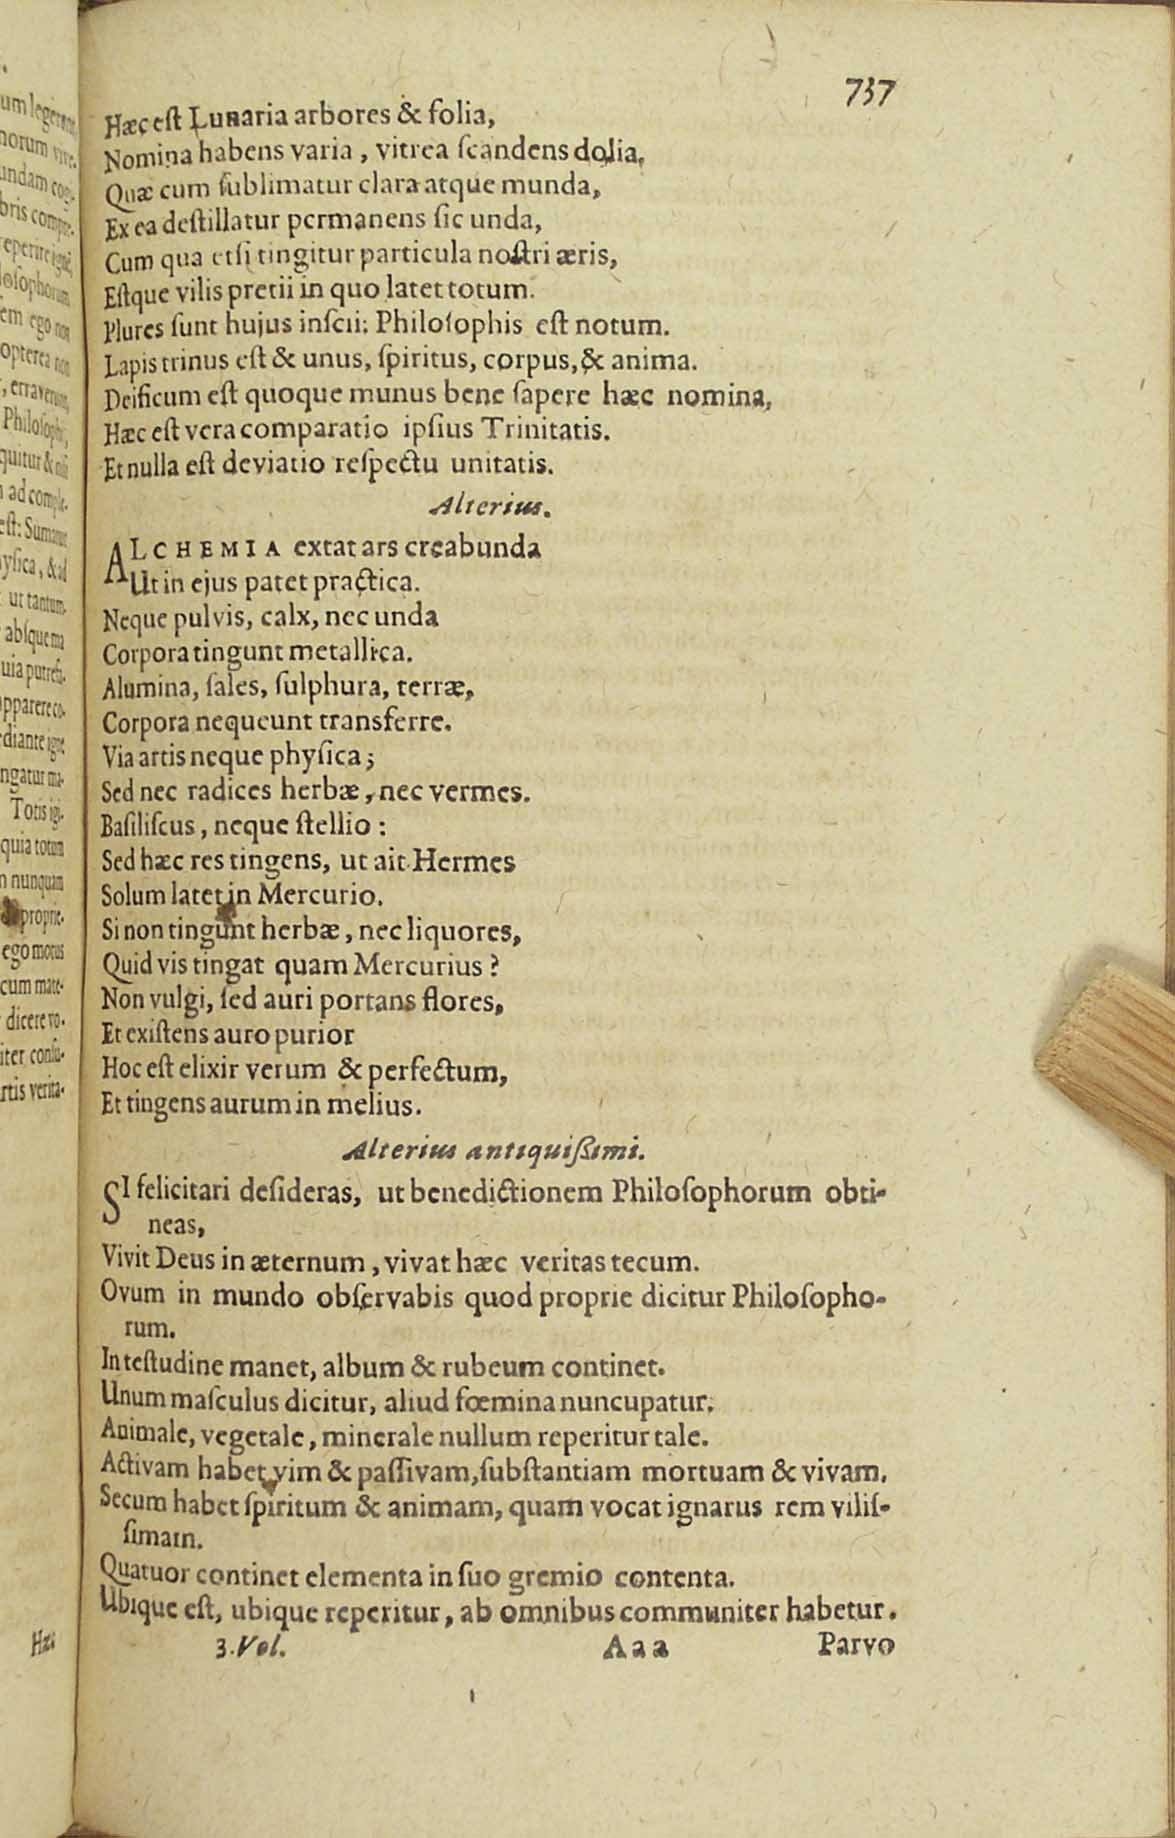 737
Hæc eſt Lunaria arbores & folia,
Nomina habens varia, vitrea ſcandens dolia,
Quæ cum ſublimatur clara atque munda,
Ex ea deſtillatur permanens ſic unda,
Cum qua etſi tingitur particula noſtri æris,
Eſtque vilis pretii in quo latet totum.
Plures ſunt hujus inſcii: Philoſophis eſt notum.
Lapis trinus eſt & unus, ſpiritus, corpus, & anima.
Deificum eſt quoque munus bene ſapere hæc nomina,
Hæc eſt vera comparatio ipſius Trinitatis.
Et nulla eſt deviatio reſpectu unitatis.
Alterius.
ALCHEMIA extat ars creabunda
Ut in ejus patet practica.
Neque pulvis, calx, nec unda
Corpora tingunt metallica.
Alumina, ſales, ſulphura, terræ,
Corpora nequeunt transferre.
Via artis neque phyſica;
Sed nec radices herbæ, nec vermes.
Baſiliſcus, neque ſtellio:
Sed hæc res tingens, ut ait Hermes
Solum latet in Mercurio.
Si non tingunt herbæ, nec liquores,
Quid vis tingat quam Mercurius?
Non vulgi, ſed auri portans flores,
Et exiſtens auro purior
Hoc eſt elixir verum & perfectum,
Et tingens aurum in melius.
Alterius antiquißimi.
SI felicitari deſideras, ut benedictionem Philoſophorum obti-
neas,
Vivit Deus in æternum, vivat hæc veritas tecum.
Ovum in mundo obſervabis quod proprie dicitur Philoſopho-
rum.
In teſtudine manet, album & rubeum continet.
Unum maſculus dicitur, aliud fœmina nuncupatur.
Animale, vegetale, minerale nullum reperitur tale.
Activam habet vim & paſſivam, ſubſtantiam mortuam & vivam.
Secum habet ſpiritum & animam, quam vocat ignarus rem viliſ-
ſimam.
Quatuor continet elementa in ſuo gremio contenta.
Ubique eſt, ubique reperitur, ab omnibus communiter habetur.
3. Vol. Aaa Parvo